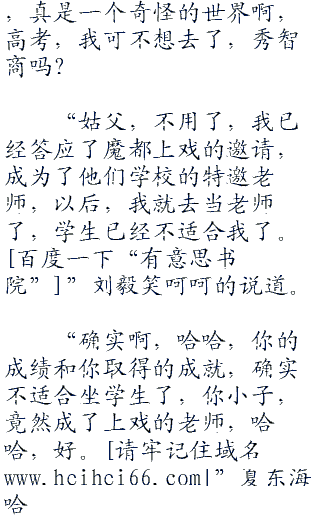 ，真是一个奇怪的世界啊，
高考，我可不想去了，秀智
商吗？
“姑父，不用了，我已
经答应了魔都上戏的邀请，
成为了他们学校的特邀老
师，以后，我就去当老师
了，学生已经不适合我了。
[百度一下“有意思书
院”]”刘毅笑呵呵的说道。
“确实啊，哈哈，你的
成绩和你取得的成就，确实
不适合坐学生了，你小子，
竟然成了上戏的老师，哈
哈，好。[请牢记住域名
www.hcihci66.com|”夏东海
哈